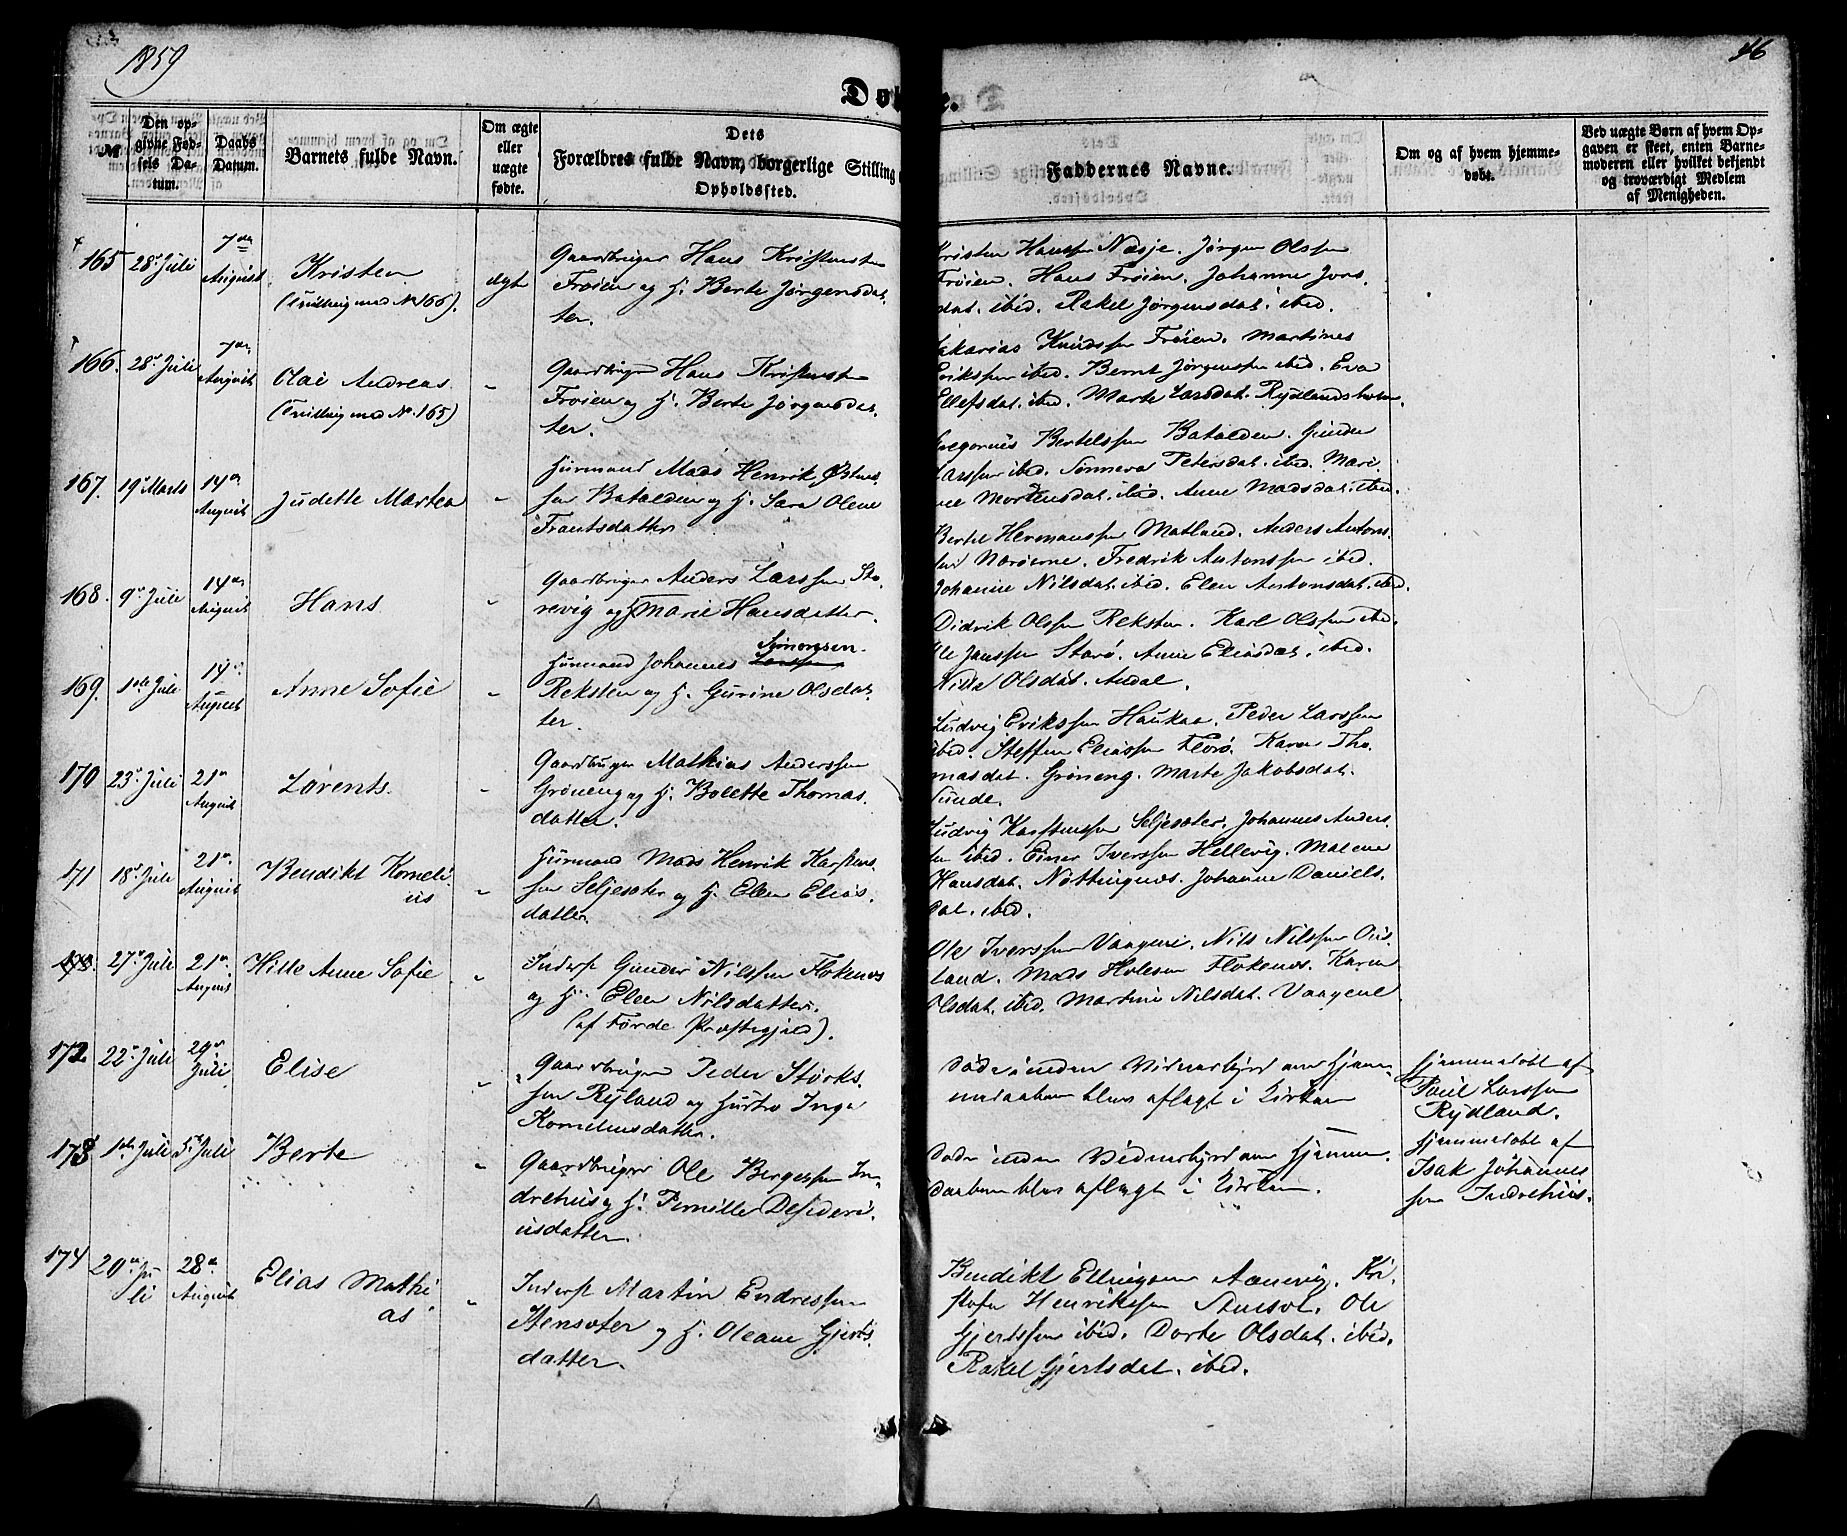 1859
46
Døbte.
№
Den opgivne Fødsels Datum.
Daabs Datum.
Barnets fulde Navn.
Om ægte eller uægte fødte.
Dets
Forældres fulde Navn, borgerlige Stilling
Opholdssted.
Faddernes Navne.
Om og af hvem hjemmedøbt.
Ved uægte Børn af hvem Opgaven er skeet, enten Barnemoderen eller hvilket bekjendt og troværdigt Medlem af Menigheden.
165 28de Juli 7de August Kristen (Tvilling med N. 166). ægt
Gaardbruger Hans Kristensen
Frøien og H. Berte Jørgensdat
ter.
Kristen Hansen Næsje. Jørgen Olssen
Frøien. Hans Frøien. Johanne Jons
dat. ibid. Rakel Jørgensdat. ibid.
166. 28de Juli 7de August Olai Andreas (Tvilling med N. 165) "
Gaardbruger Hans Kristensen
Frøien og H. Berte Jørgensdat
ter.
Sakarias Knudssen Frøien. Martines
Erikssen ibid. Bernt Jørgenssen ibid. Eva
Ellefsdat. ibid. Marte Larsdat. Rydlandsholm.
167. 19de Marts 14de August Judette Martea "
Husmand Mads Henrik Østens
sen Batalden og H. Sara Olene
Frantsdatter
Gregorius Bertelssen Batalden. Gunder
Larssen ibid. Sønneva Petersdat. ibid. Mari
ne Mortensdat. ibid. Anne Madsdat. ibid.
168. 9de Juli 14de August Hans "
Gaardbruger Anders Larssen Sto
revig og H. Marie Hansdatter.
Bertel Hermanssen Matland. Anders Antons
sen Nærøerne. Fredrik Antonssen ibid.
Johanne Nilsdat. ibid. Elen Antonsdat. ibid.
169. 1ste Juli 14de August Anne Sofie "
Husmand Johannes Larssen Simonssen
Reksten og H. Gurine Olsdat
ter.
Didrik Olssen Reksten. Karl Olssen ibid.
Ole Janssen Starø. Anne Eliasdat. ibid.
Nilla Olsdat. Andal.
170 23de Juli 21de August Lorents. "
Gaardbruger Mathias Anderssen
Grøneng og H. Bolette Thomas
datter.
Ludvig Erikssen Haukaa. Peder Larssen
ibid. Steffen Eliassen Florø. Karen Tho
masdat. Grøneng. Marte Jakobsdat.
Sunde.
171 18de Juli 21de August Bendikt Korneli
us "
Husmand Mads Henrik Karstens
sen Seljesæter og H. Ellen Elias
datter.
Ludvig Karstenssen Seljesæter. Johannes Anders
sen ibid. Einer Iverssen Hellevig. Malene
Hansdat. Nøttingnes. Johanne Daniels
dat. ibid.
27de Juli 21de August Hille Anne Sofie "
Inderst Gunder Nilssen Flokenes
og H. Elen Nilsdatter.
(af Førde Præstegjeld).
Ole Iverssen Vaagene. Nils Nilssen
land. Mads Flokenes. Karen
Olsdat. ibid. Martine Nilsdat. Vaagene
172. 22de Juli 29de Juli Elise "
Gaardbruger Peder Størks
sen Ryland og Hustru Inga
Korneliusdatter.
Døde inden Vidnesbyrd om Hjem
medaaben blev aflagt i Kirken
Hjemmedøbt af
Poul Larssen
Rydland.
173 1ste Juli 5te Juli Berte "
Gaardbruger Ole Bergessen In
drehus og H. Pernille Desideri
usdatter.
Døde inden Vidnesbyrd om Hjemme
daaben blev aflagt i Kirken.
Hjemmedøbt af
Isak Johannes
sen Indrehus.
174 20de Ju
li 28de August Elias Mathi
as "
Inderst Martin Endressen
Stensæter og H. Oleane Gjerts
datter.
Bendikt Ellingsen Aanevig. Kri
stofer Henrikssen Stensæt. Ole
Gjertssen ibid. Dorte Olsdat. ibid.
Rakel Gjertsdat. ibid.